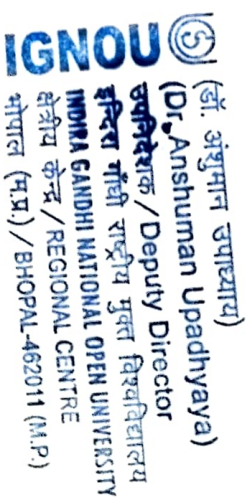 (डॉ. अंशुमान उपाध्याय)
(Dr. Anshuman Upadhyaya)
उपनिदेशक / Deputy Director
इन्दिरा गाँधी राष्ट्रीय मुक्त विश्वविद्यालय
INDIRA GANDHI NATIONAL OPEN UNIVERSITY
क्षेत्रीय केन्द्र / REGIONAL CENTRE
भोपाल (म.प्र.) / BHOPAL-462011 (M.P.)
IGNOU